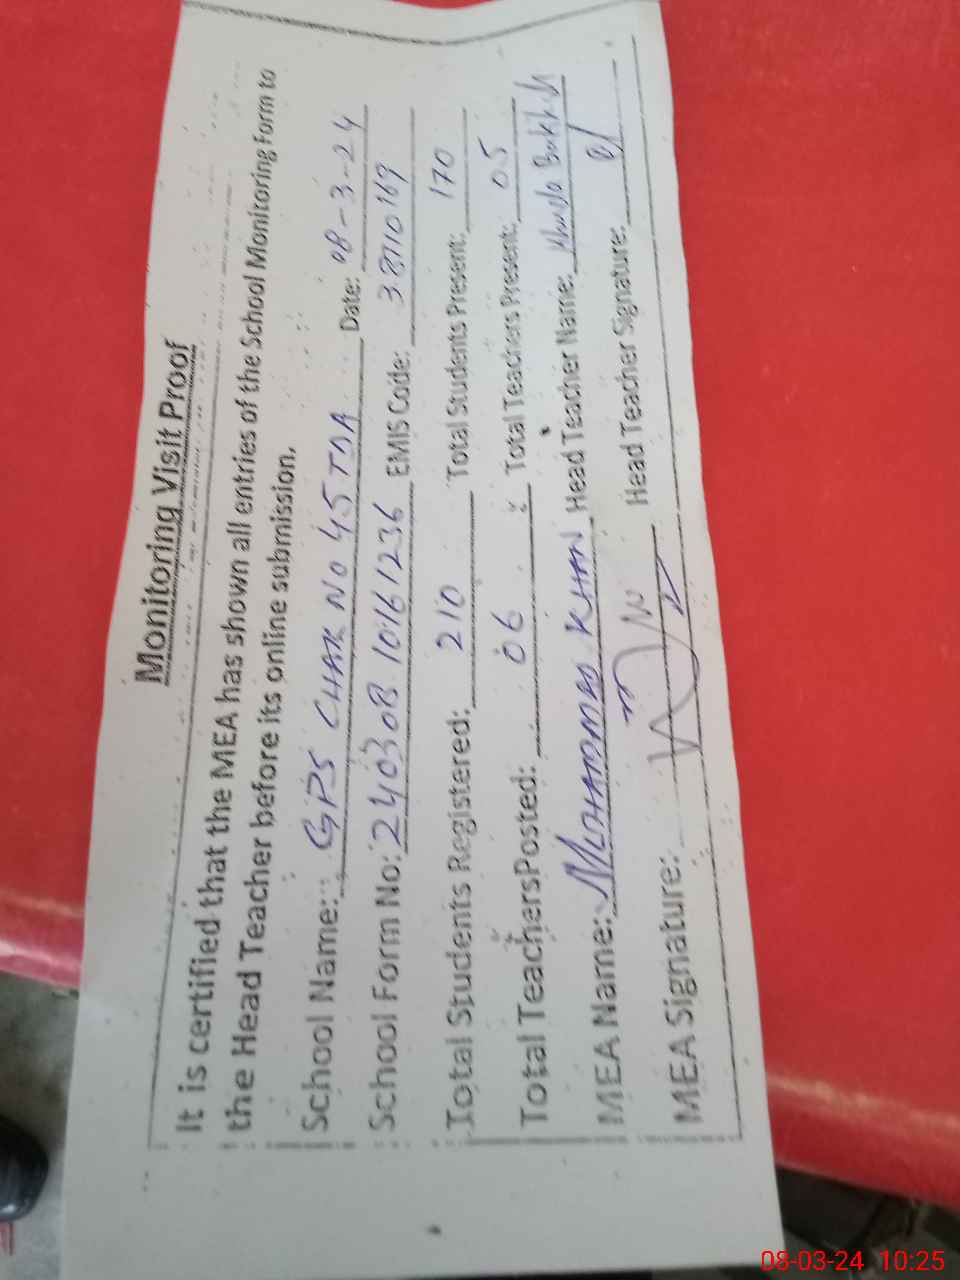 Monitoring Visit Proof
It is certified that the MEA has shown all entries of the School Monitoring Form to
the Head Teacher before its online submission.
School Name: GPS CHAK NO 45 TDA Date: 08-3-24
School Form No: 240308 10161236 EMIS Code: 38110169
Total Students Registered: 210 Total Students Present: 170
Total TeachersPosted: 06 Total Teachers Present: 05
MEA Name: MUHAMMAD KHAN Head Teacher Name: Bakhsh
MEA Signature: Head Teacher Signature:
08-03-24 10:25